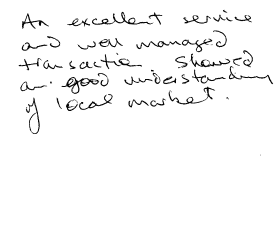 An excellent service
and well managed
transaction showed
an good understanding
of local market.